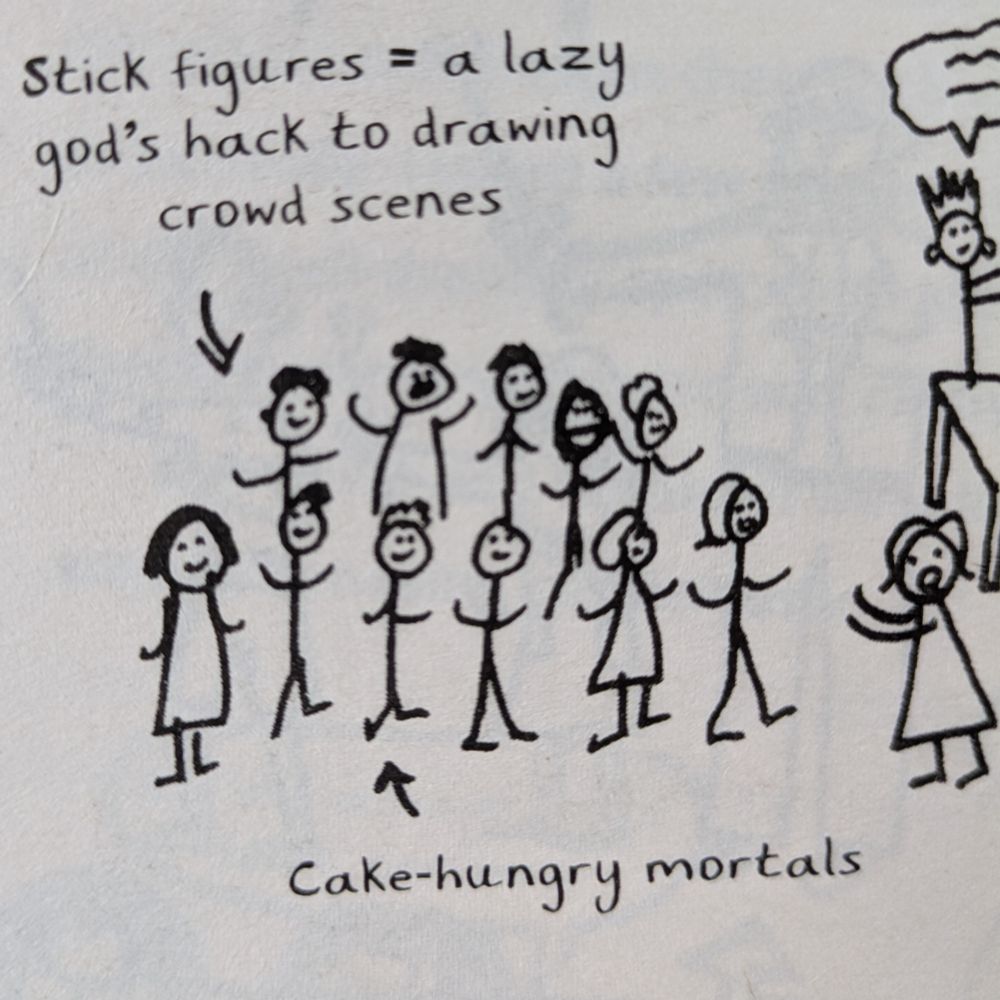 Stick figures = a lazy
god's hack to drawing
crowd scenes
Cake-hungry mortals